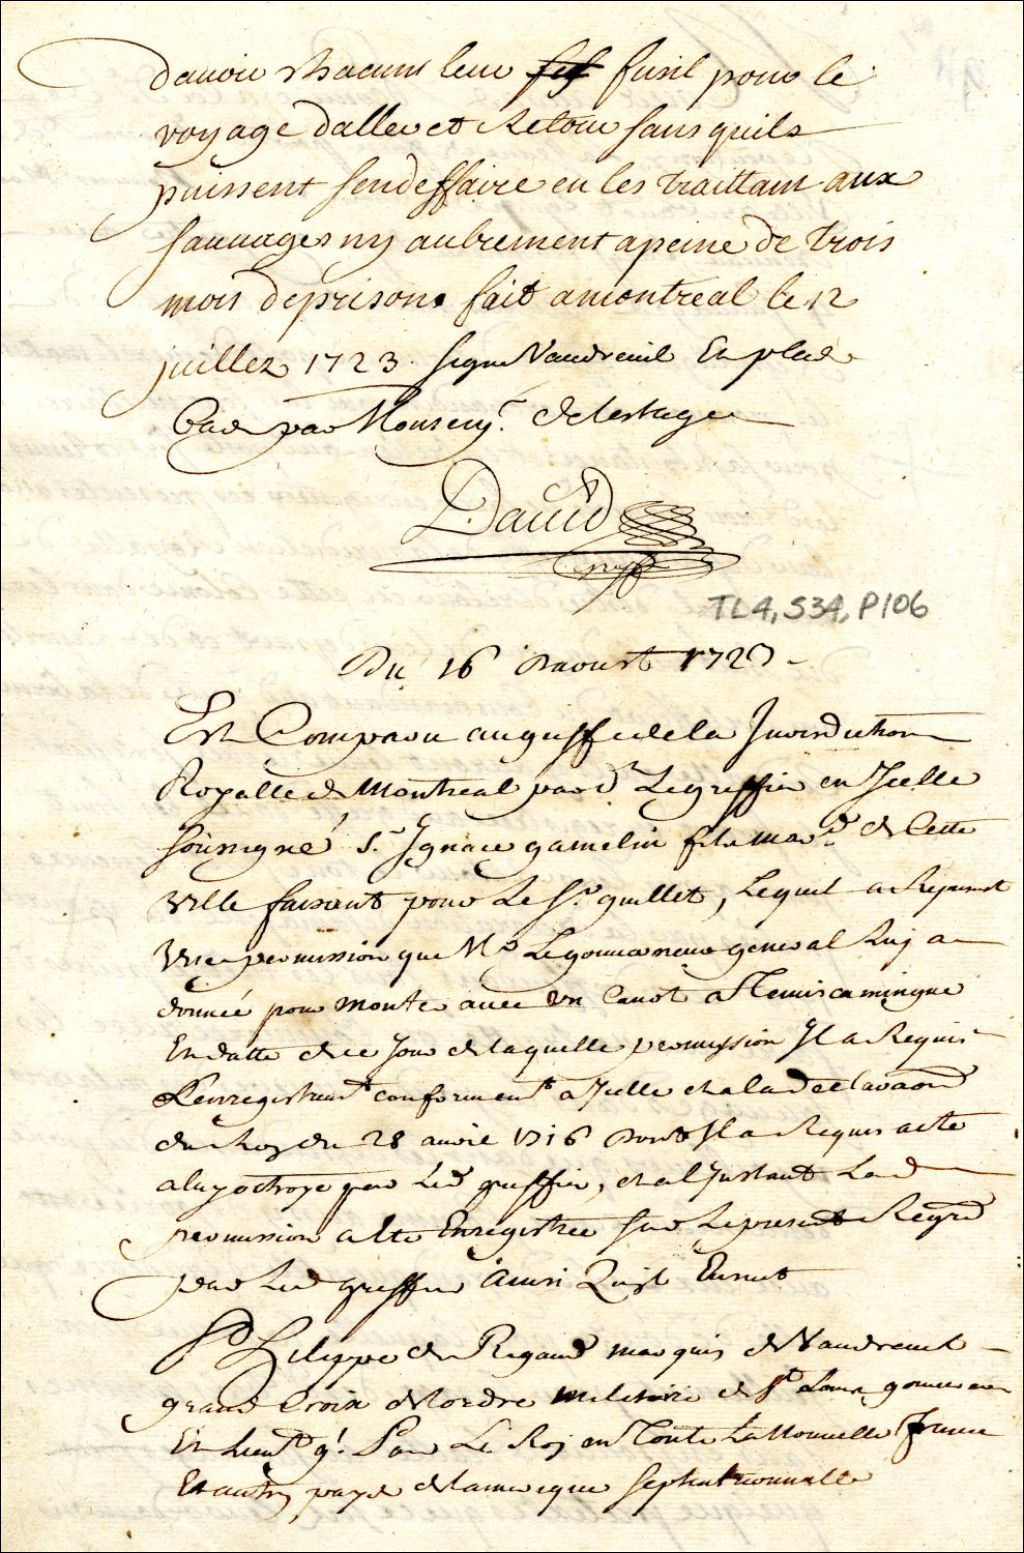 davoir chacun leur fusil pour le
voyage daller et Retour sans quils
puissent sendeffaire en les traittant aux
sauvages ny autrement apeine de trois
mois de prison. fait amontreal le 12
juillet 1723. signe Vaudreuil Et plus
bas par Monseigr. delestage
David
greffier
TL4, S34, P106
Du 16 Daoust 1723
Est Comparu au greffe de la Jurisdiction
Royalle de Montreal pardt Le greffier en Icelle
soussigné Sr. Ignace gamelin fils mard. de Cette
Ville faisant pour Le Sr. guillet, Lequel a Represente
Une permission que Mr Le gouverneur general luy a
donnée pour monter avec un Canot a Temiscamingue
En datte de ce Jour de laquelle permission Il a Requis
L'enregistremt conforment a Icelle et a la declaraon
du Roy du 28 avril 1716 dont Il a Requis acte
a luy octroyé par Led greffier, et a l'Instant Lad
permission a ete Enregistrée sur Le present Regre
par Led greffier Ainsi Quil Ensuit
Philippe de Rigaud marquis de Vaudreuil
grand Croix de lordre militaire de St Louis gouverneur
Et Lieutt gl. Pour Le Roy en Toute La Nouvelle france
Et autres pays de lamerique septentrionnalle